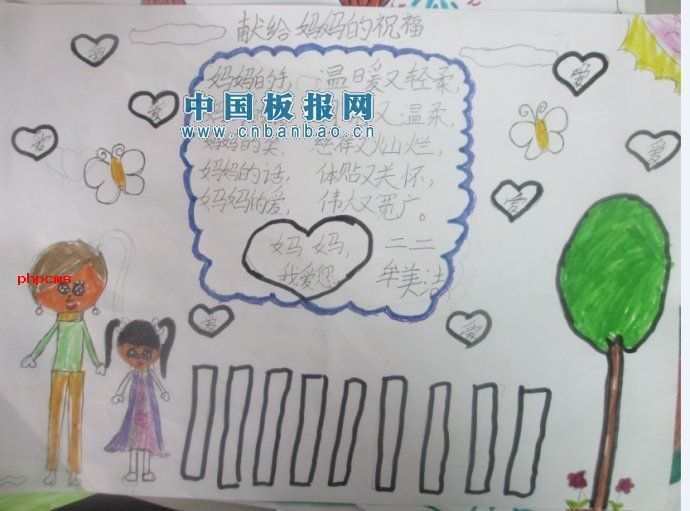 献给妈妈的祝福
妈妈的手, 温暖又轻柔,
又温柔,
妈妈的笑, 慈祥又灿烂,
妈妈的话, 体贴又关怀,
妈妈的爱, 伟大又宽广。
妈妈,
我爱您
二二
牟美洁
爱
爱
爱
爱
爱
爱
爱
爱
中国板报网
www.cnbanbao.cn
phpcms